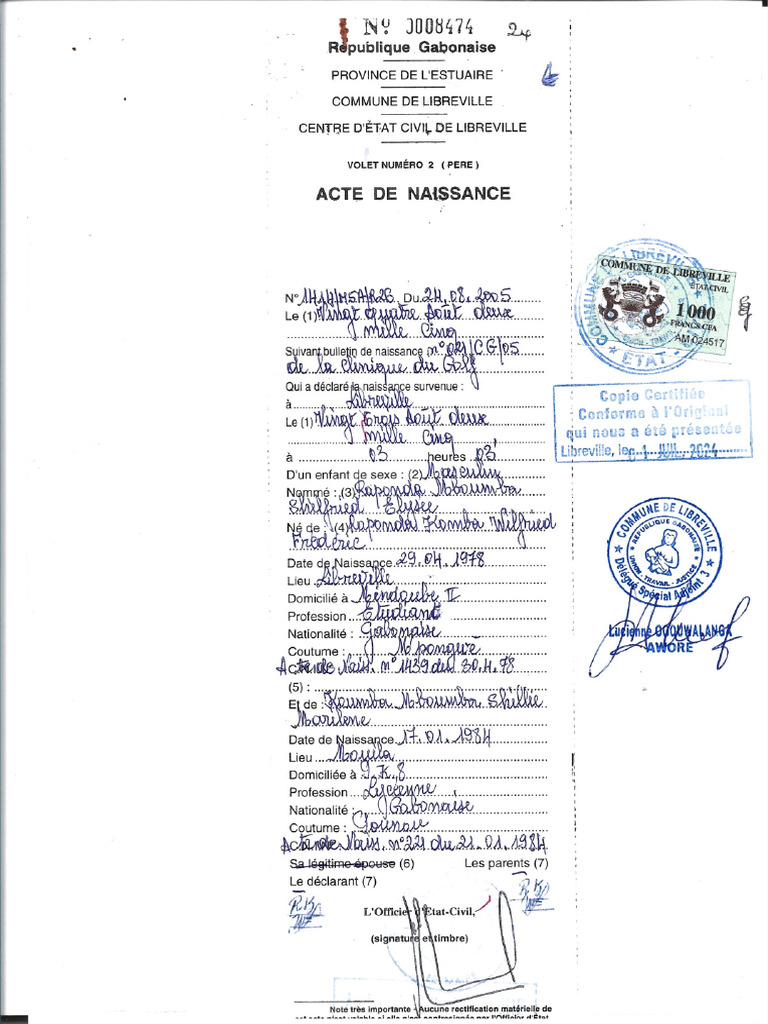 Nº 0008474
24
République Gabonaise
PROVINCE DE L'ESTUAIRE
COMMUNE DE LIBREVILLE
CENTRE D'ÉTAT CIVIL DE LIBREVILLE
VOLET NUMÉRO 2 ( PERE )
ACTE DE NAISSANCE
N° Du 24.08.2005
Le (1) Vingt quatre Août deux
mille Cinq
Suivant bulletin de naissance n° 021/C.G/05
de la clinique du Golf
Qui a déclaré la naissance survenue :
à Libreville
Le (1) Vingt trois Août deux
mille Cinq
à 03 heures 03'
D'un enfant de sexe : (2) Masculin
Nommé : (3) Raponda Mboumba
Shilfried Elysée
Né de : (4) Raponda Komba Wilfried
Frédéric
Date de Naissance 29.04.1978
Lieu Libreville
Domicilié à II
Profession Etudiant
Nationalité : Gabonaise
Coutume : Mpongwè
Acte de Naiss. n° 1439 du 30.4.78
(5) :
Et de : Koumba Mboumba Shillie
Marilène
Date de Naissance 17.01.1984
Lieu Mouila
Domiciliée à P.K.8
Profession Lycéenne
Nationalité : Gabonaise
Coutume :
Acte de Naiss. n° 221 du 21.01.1984
Sa légitime épouse (6) Les parents (7)
Le déclarant (7)
L'Officier d'Etat-Civil,
(signature et timbre)
Note très importante - Aucune rectification matérielle de
COMMUNE DE LIBREVILLE
ETAT-CIVIL
1000
FRANCS CFA
AM 024517
COMMUNE DE LIBREVILLE
ETAT
Copie Certifiée
Conforme à l'Original
qui nous a été présentée
Libreville, le 1 JUIL. 2024
COMMUNE DE LIBREVILLE
REPUBLIQUE GABONAISE
UNION - TRAVAIL - JUSTICE
Délégué Spécial Adjoint 3
Lucienne OGOUWALANGA
AWORE